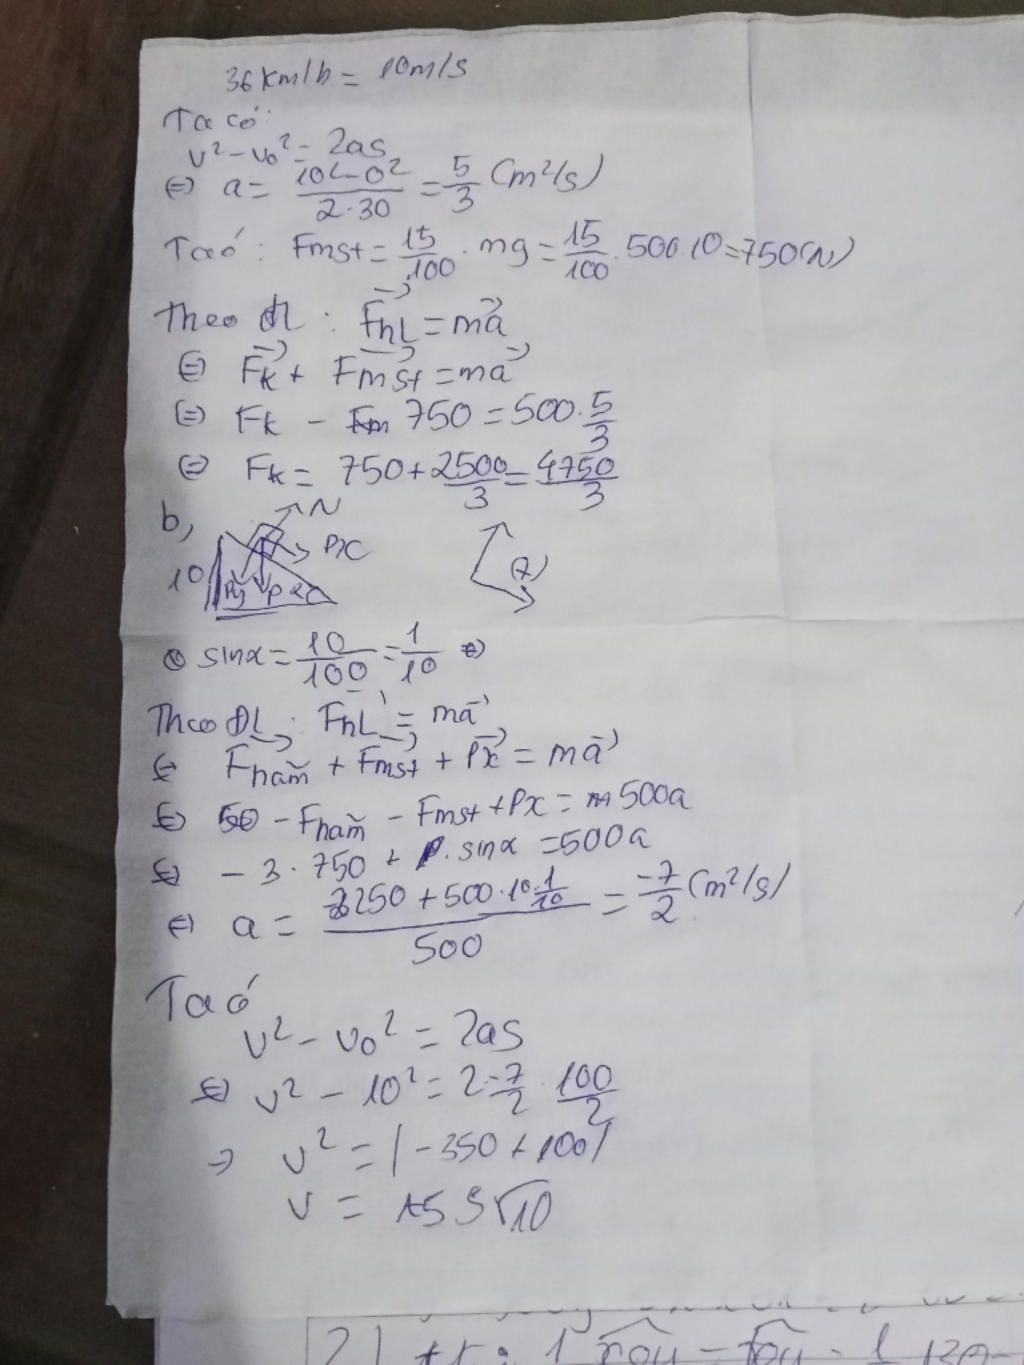 36 km/h = 10m/s
Ta có:
v² - v₀² = 2as
⇔ a = (10² - 0²)/(2·30) = 5/3 (m²/s)
Taó: Fmst = 15/100 · mg = 15/100 · 500·10 = 750(N)
Theo ĐL: F⃗hL = ma⃗
⇔ F⃗k + F⃗mst = ma⃗
⇔ Fk - 750 = 500·5/3
⇔ Fk = 750 + 2500/3 = 4750/3
b,
N
Px
10
Py
P
α
(+)
sinα = 10/100 = 1/10 ⇔
Theo ĐL: F⃗hL = ma⃗
⇔ F⃗hãm + F⃗mst + P⃗x = ma⃗
⇔ - Fhãm - Fmst + Px = 500a
⇔ - 3·750 + P·sinα = 500a
⇔ a = (-2250 + 500·10·1/10)/500 = -7/2 (m²/s)
Taó
v² - v₀² = 2as
⇔ v² - 10² = 2·-7/2 · 100/2
→ v² = |-350 + 100|
v = 5√10
2)